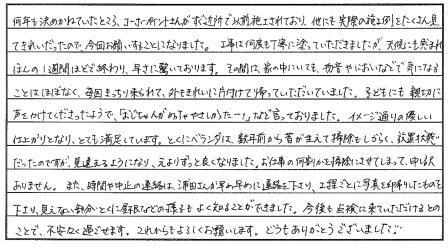 何年も決めかねていたところ、ユーホーペイントさんが近所で以前施工されており、他にも実際の施工例をたくさん見
てきれいだったので、今回お願いすることになりました。工事は何度も丁寧に塗っていただきましたが、天候にも恵まれ
ほんの1週間ほどで終わり、早さに驚いております。その間は、家の中にいても、物音やにおいなどで気になる
ことはほぼなく、毎回きっちり来られて、外もきれいに片付けて帰っていただいていました。子どもにも親切に
声をかけてくださったようで、「おじちゃんがめちゃやさしかったー!」など言っておりました。イメージ通りの優しい
仕上がりとなり、とても満足しています。とくにベランダは、数年前から苔が生えて掃除もしがらく、放置状態
だったのですが、見違えるようになり、元よりずっと良くなりました。お仕事の何割かを掃除にさせてしまって、申し訳
ありません。また、時間や中止の連絡は、浦田さんが早め早めに連絡を下さり、工程ごとに写真をお持ちしたものを
下さり、見えない部分、とくに屋根などの様子もよく知ることができました。今後も点検に来ていただけるとの
ことで、不安なく過ごせます。これからもよろしくお願いします。どうもありがとうございました。